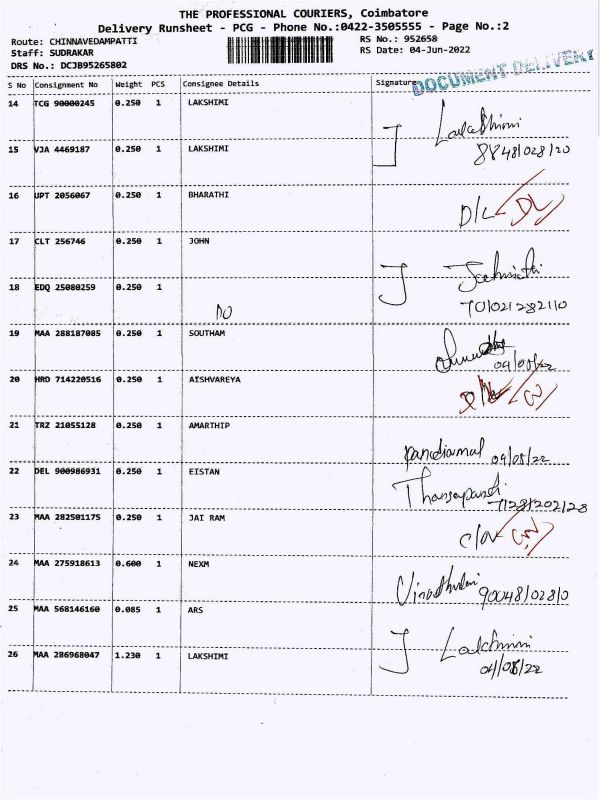 THE PROFESSIONAL COURIERS, Coimbatore
Delivery Runsheet - PCG - Phone No.:0422-3505555 - Page No.:2
Route: CHINNAVEDAMPATTI RS No.: 952658
Staff: SUDRAKAR RS Date: 04-Jun-2022
DRS No.: DCJB95265802
DOCUMENT DELIVERY
S No Consignment No Weight PCS Consignee Details Signature
14 TCG 90000245 0.250 1 LAKSHIMI
Lakshimi
15 VJA 4469187 0.250 1 LAKSHIMI
8848/028/20
16 UPT 2056067 0.250 1 BHARATHI
D/L DL
17 CLT 256746 0.250 1 JOHN
18 EDQ 25080259 0.250 1
DO
701021282110
19 MAA 288187085 0.250 1 SOUTHAM
04/08/22
20 HRD 714220516 0.250 1 AISHVAREYA
21 TRZ 21055128 0.250 1 AMARTHIP
Pandiamal 04/08/22
22 DEL 900986931 0.250 1 EISTAN
7128/202128
23 MAA 282501175 0.250 1 JAI RAM
24 MAA 275918613 0.600 1 NEXM
90048102810
25 MAA 568146160 0.085 1 ARS
Lakhmini
26 MAA 286968047 1.230 1 LAKSHIMI
04/08/22